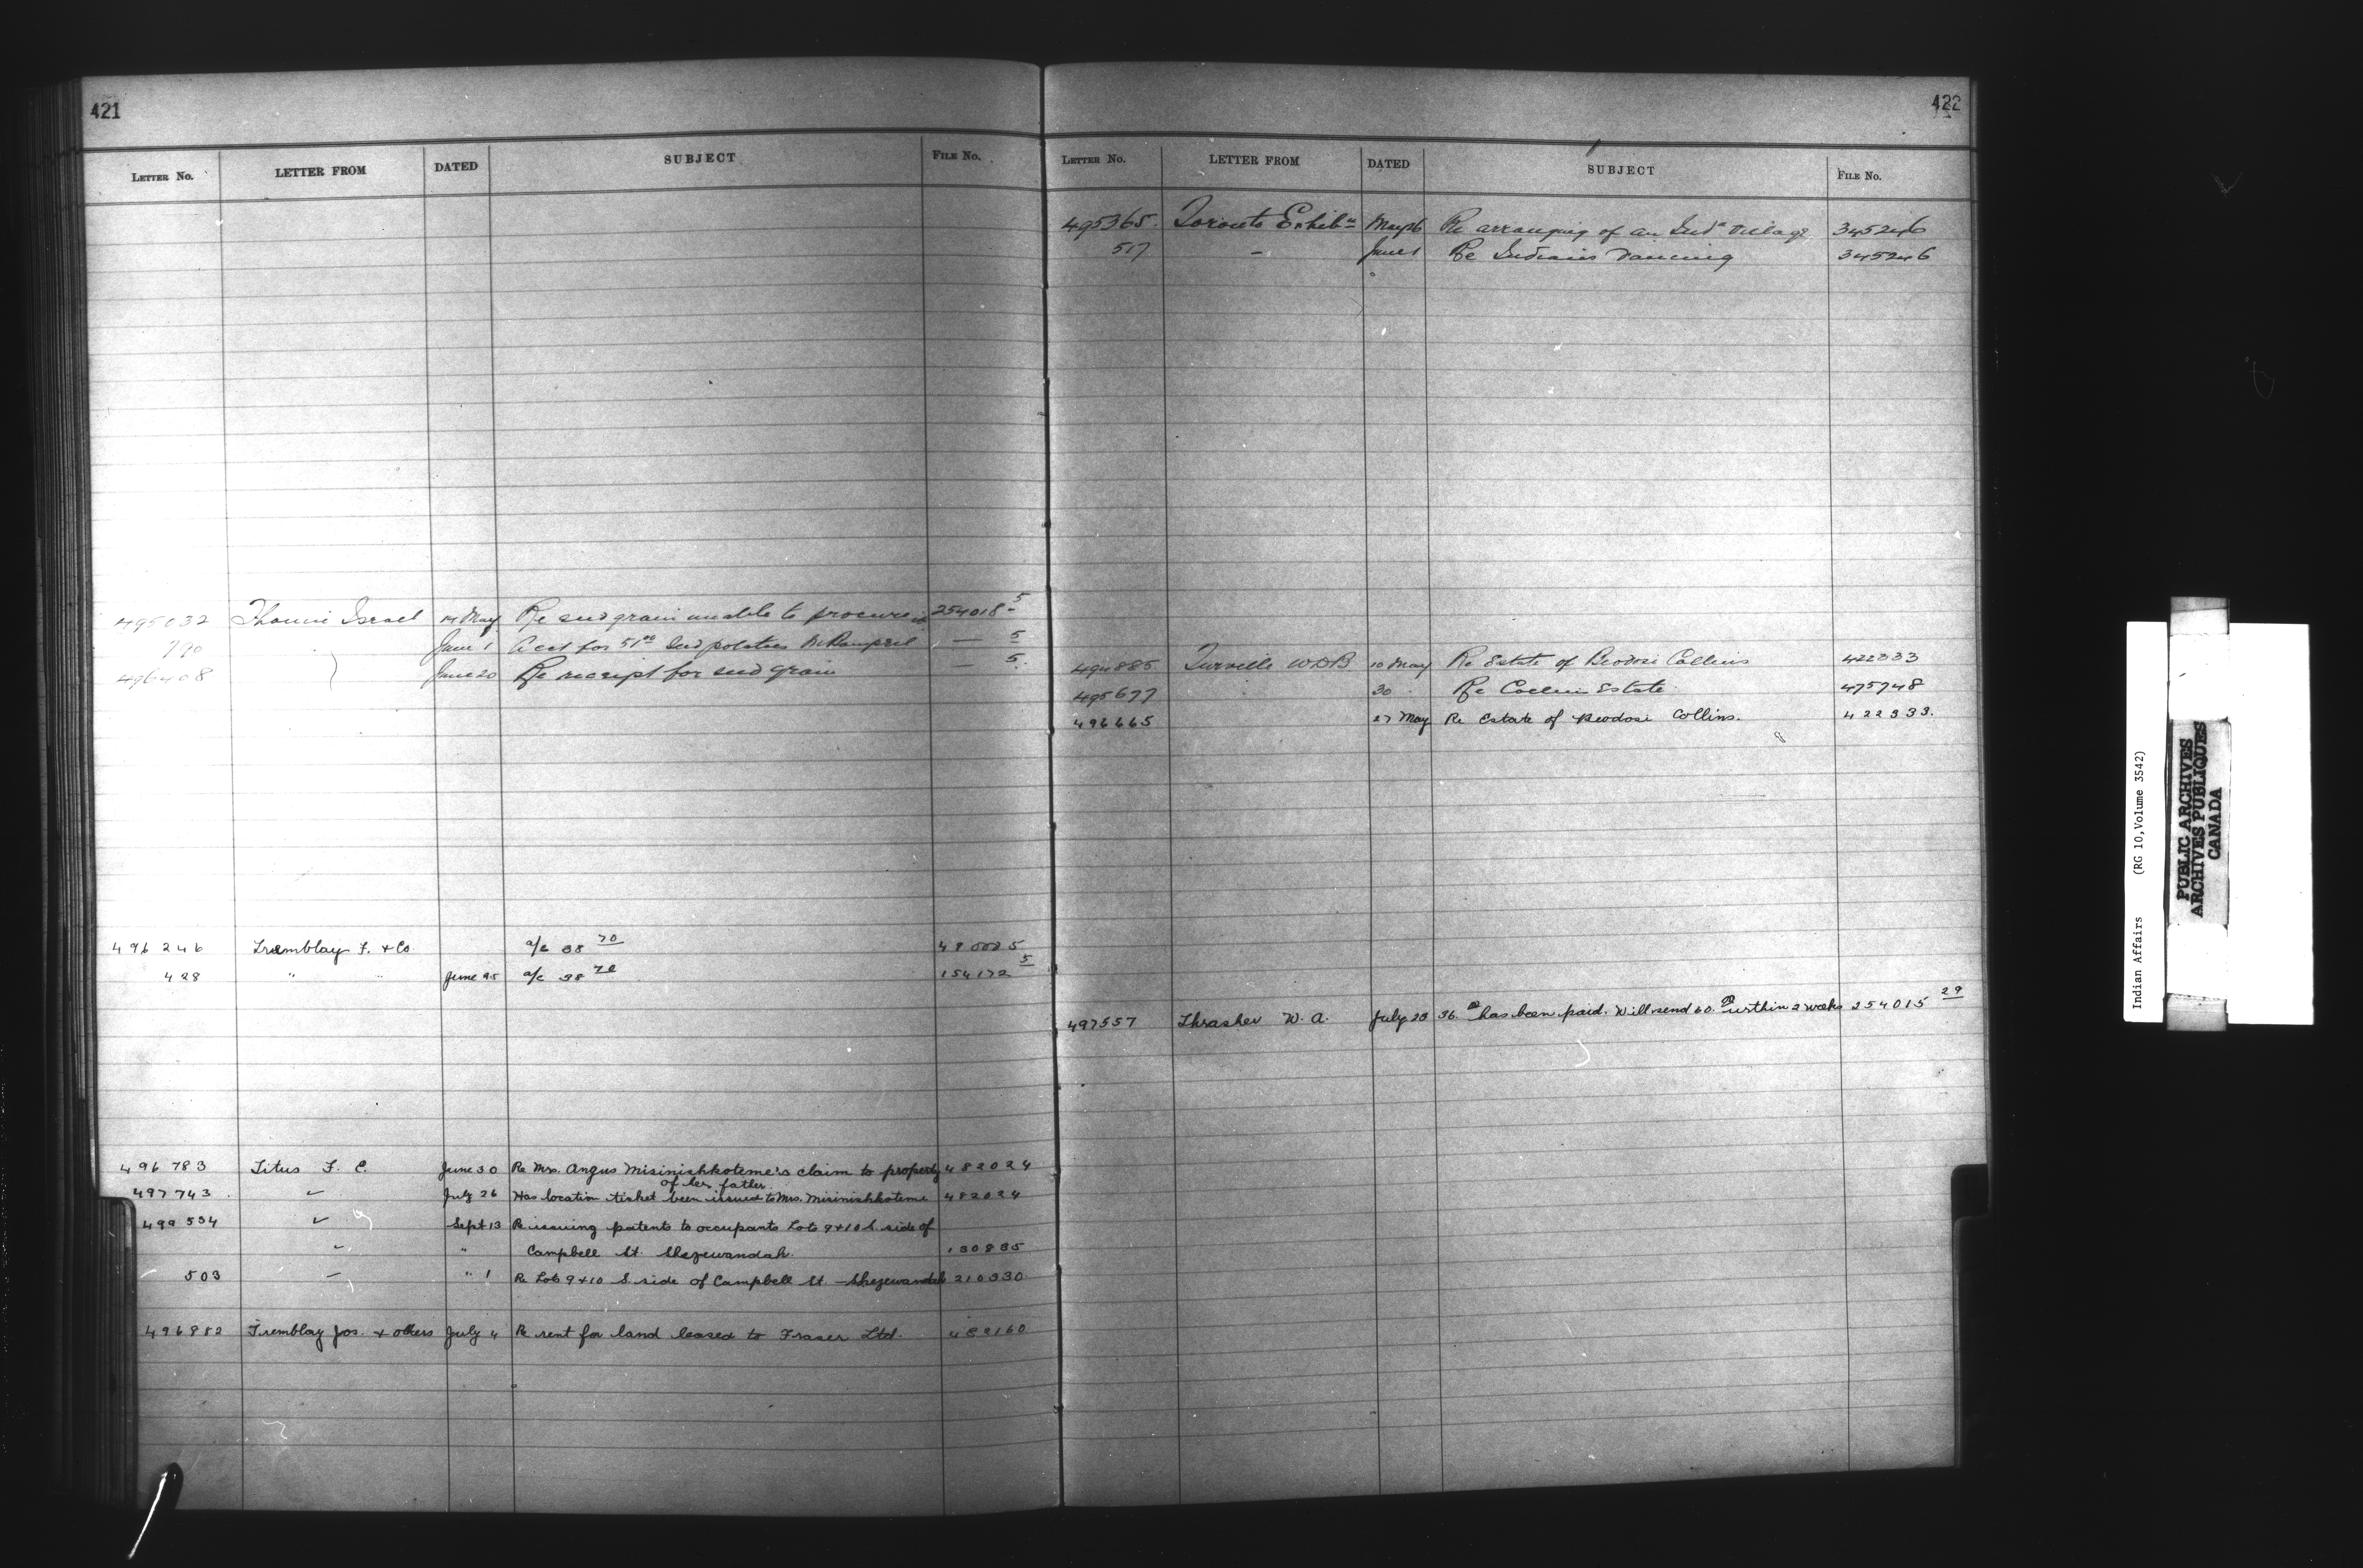 421
LETTER No. LETTER FROM DATED SUBJECT FILE No.
495032 Israel 14 May Re seed grain unable to procure it 254018-5
790 June 1 Acct for 51 Seed potatoes — 5
496408 June 20 Re receipt for seed grain — 5
496246 Tremblay F. & Co a/c 38 70
428 " " June 25 a/c 38 70 154172 5
496783 Titus F. C. June 30 Re Mrs. Angus Misinishkoteme's claim to property 482024
of her father
497743 " July 26 Has location ticket been issued to Mrs. Misinishkoteme 482024
499554 " Sept 13 Re issuing patents to occupants Lots 9 & 10 S. side of
" " Campbell St. Shezewandah. 130835
503 — " 1 Re Lots 9 & 10 S. side of Campbell St. — Shezewandah 210330
496982 Tremblay Jos. & others July 4 Re rent for land leased to Fraser Ltd. 482160
422
LETTER No. LETTER FROM DATED SUBJECT FILE No.
495365 Toronto Exhibn May 26 Re arranging of an Indn Village 345246
517 — June 1 Re Indians Dancing 345246
494885 Turville W.D.B. 10 May Re Estate of Collins 422333
495677 30 Re Estate 475748
496665 27 May Re Estate of Collins. 422333.
497557 Thrasher W. A. July 23 36. has been paid. Will send 60. within 2 weeks 254015 29
Indian Affairs (RG 10, Volume 3542)
PUBLIC ARCHIVES
ARCHIVES PUBLIQUES
CANADA